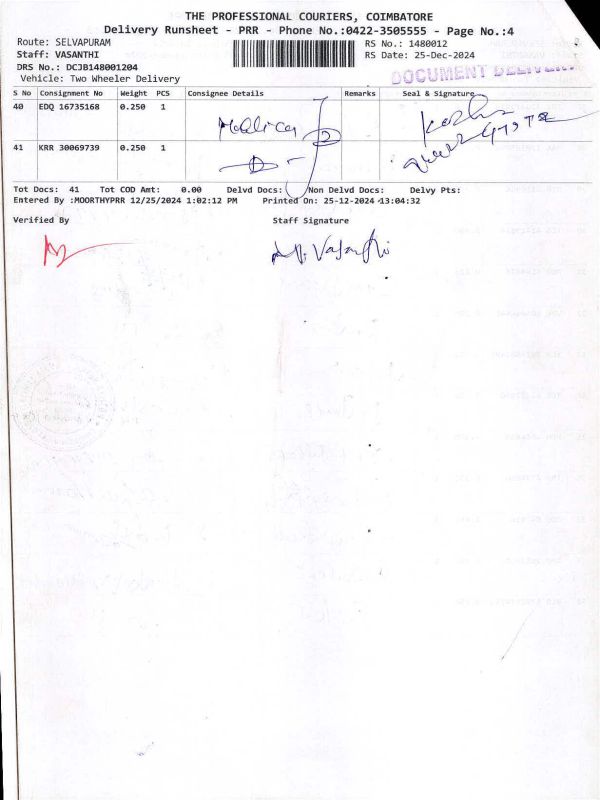 THE PROFESSIONAL COURIERS, COIMBATORE
Delivery Runsheet - PRR - Phone No.:0422-3505555 - Page No.:4
Route: SELVAPURAM RS No.: 1480012
Staff: VASANTHI RS Date: 25-Dec-2024
DRS No.: DCJB148001204
Vehicle: Two Wheeler Delivery
DOCUMENT DELIVERY
S No Consignment No Weight PCS Consignee Details Remarks Seal & Signature
40 EDQ 16735168 0.250 1
41 KRR 30069739 0.250 1
Tot Docs: 41 Tot COD Amt: 0.00 Delvd Docs: Non Delvd Docs: Delvy Pts:
Entered By :MOORTHYPRR 12/25/2024 1:02:12 PM Printed On: 25-12-2024 13:04:32
Verified By Staff Signature
Vasanthi